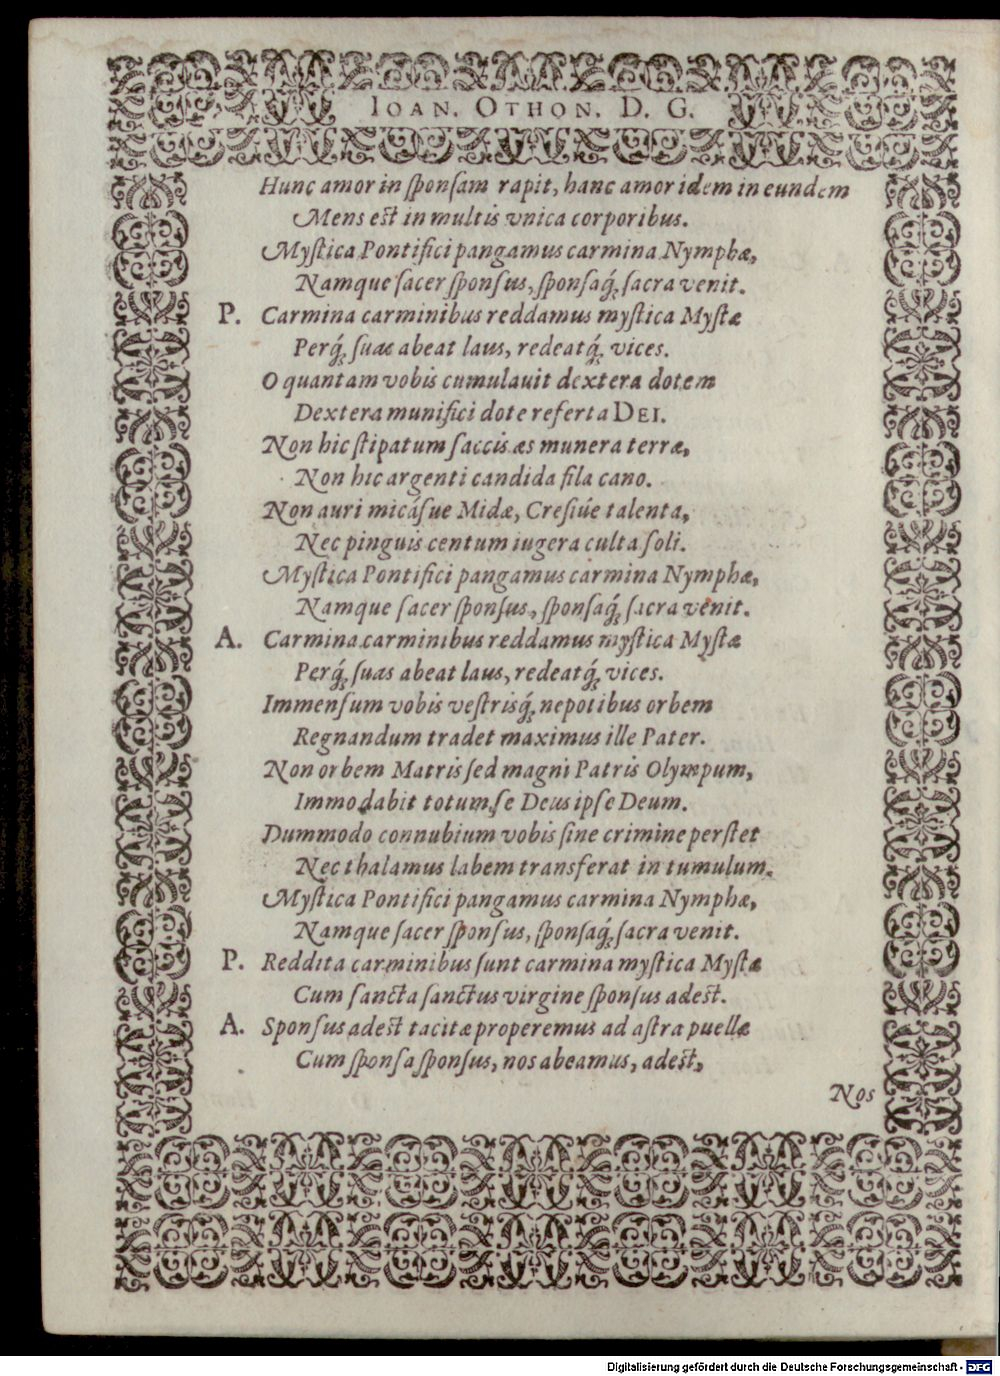 IOAN. OTHON. D. G.
Hunc amor in ſponſam rapit, hanc amor idem in eundem
Mens est in multis vnica corporibus.
Myſtica Pontifici pangamus carmina Nymphæ,
Namque ſacer ſponſus, ſponſaq́; ſacra venit.
P. Carmina carminibus reddamus myſtica Myſtæ
Perq́; ſuas abeat laus, redeatq́; vices.
O quantam vobis cumulauit dextera dotem
Dextera munifici dote referta DEI.
Non hic ſtipatum ſaccis æs munera terræ,
Non hic argenti candida fila cano.
Non auri micáſue Midæ, Creſiúe talenta,
Nec pinguis centum iugera culta ſoli.
Myſtica Pontifici pangamus carmina Nymphæ,
Namque ſacer ſponſus, ſponſaq́; ſacra venit.
A. Carmina carminibus reddamus myſtica Myſtæ
Perq́; ſuas abeat laus, redeatq́; vices.
Immenſum vobis veſtrisq́; nepotibus orbem
Regnandum tradet maximus ille Pater.
Non orbem Matris ſed magni Patris Olympum,
Immo dabit totum ſe Deus ipſe Deum.
Dummodo connubium vobis ſine crimine perſtet
Nec thalamus labem transferat in tumulum.
Myſtica Pontifici pangamus carmina Nymphæ,
Namque ſacer ſponſus, ſponſaq́; ſacra venit.
P. Reddita carminibus ſunt carmina myſtica Myſtæ
Cum ſancta ſanctus virgine ſponſus adest.
A. Sponſus adest tacitæ properemus ad aſtra puellæ
Cum ſponſa ſponſus, nos abeamus, adest,
Nos
Digitalisierung gefördert durch die Deutsche Forschungsgemeinschaft - DFG